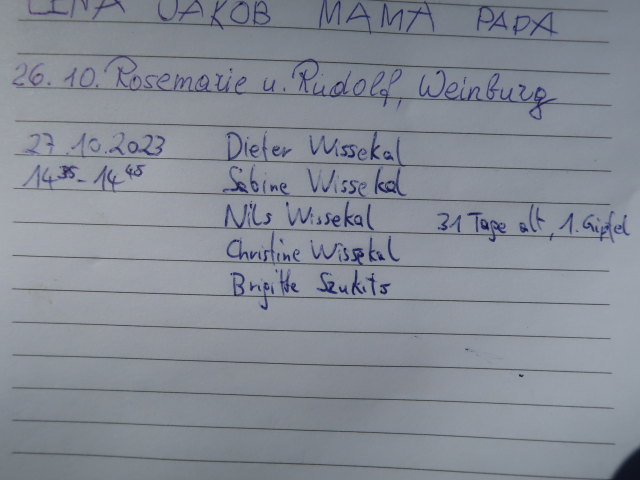 LENA JAKOB MAMA PAPA
26.10. Rosemarie u. Rudolf, Weinburg
27.10.2023 Dieter Wissekal
14³⁵-14⁴⁵ Sabine Wissekal
Nils Wissekal 31 Tage alt, 1. Gipfel
Christine Wissekal
Brigitte Szukits